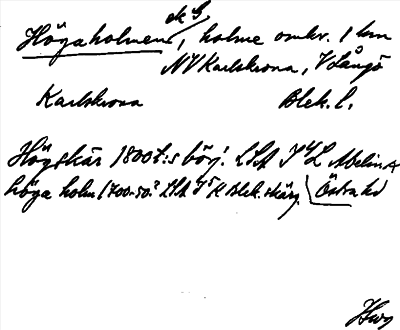 ek G
Högaholmen, holme omkr. 1 km
NV Karlskrona, V Långö
Karlskrona Blek. l.
Högskär 1800 t:s börj. LSA Melin
höga holm 1700-50? LSA Blek. skärg. Östra hd